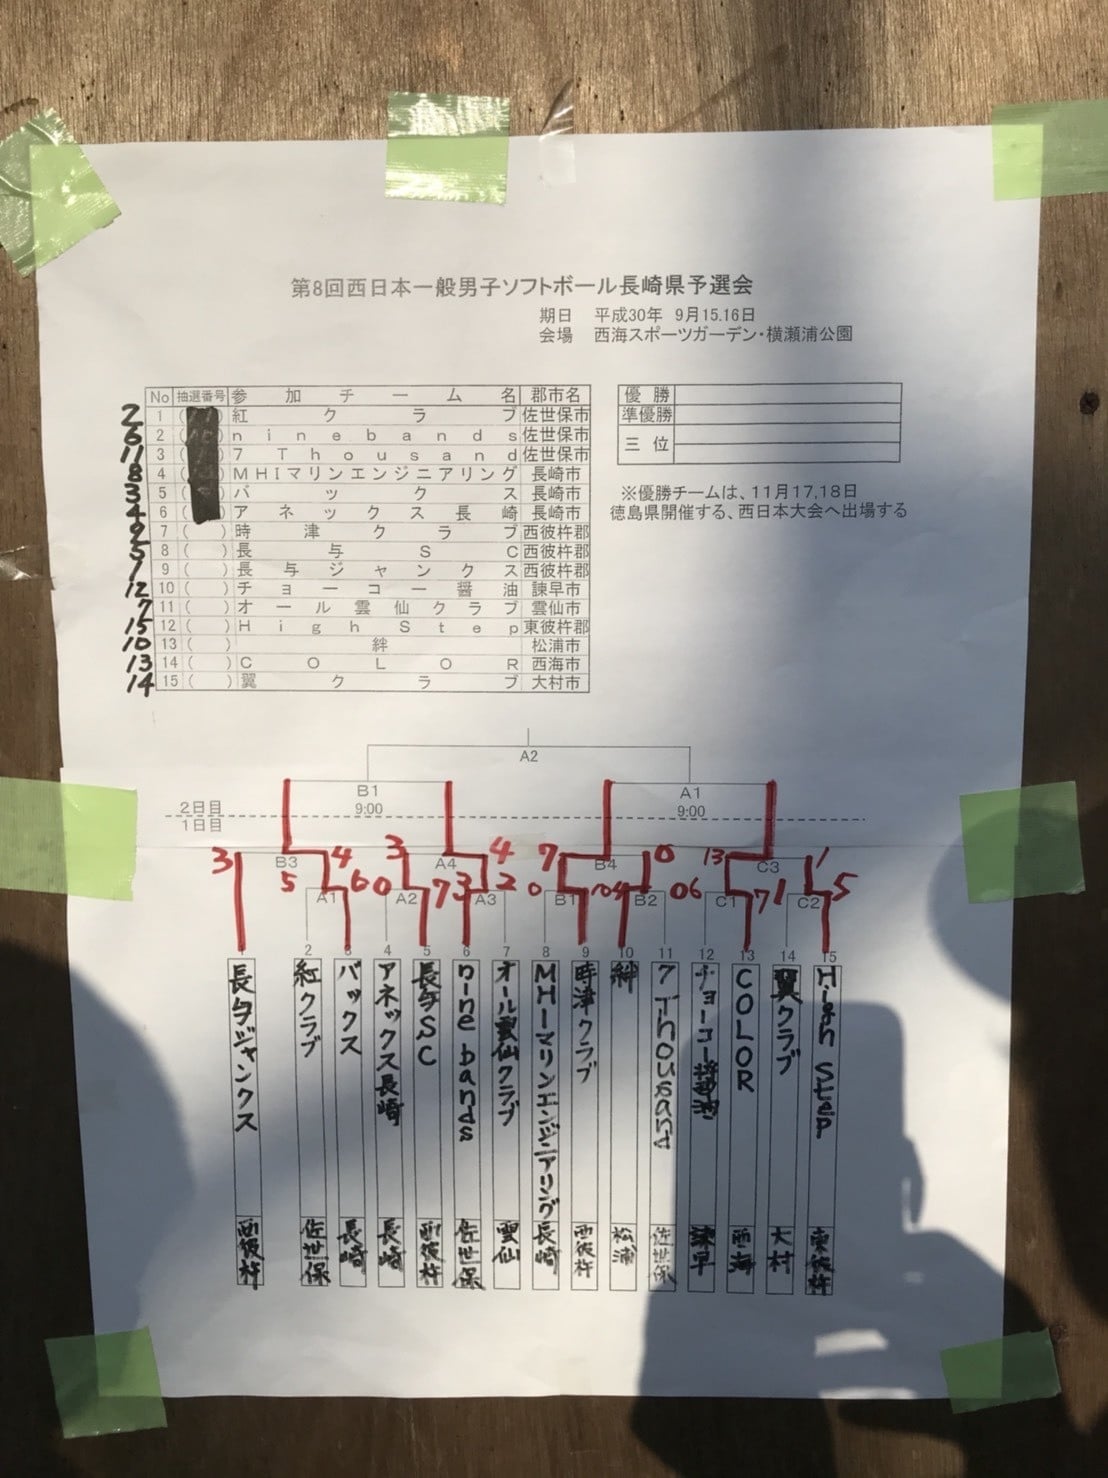 第8回西日本一般男子ソフトボール長崎県予選会
期日 平成30年 9月15.16日
会場 西海スポーツガーデン・横瀬浦公園
No 抽選番号 参加チーム名 郡市名
2 1 ( ) 紅クラブ 佐世保市
6 2 ( ) ninebands 佐世保市
11 3 ( ) 7Thousand 佐世保市
8 4 ( ) MHIマリンエンジニアリング 長崎市
3 5 ( ) バックス 長崎市
4 6 ( ) アネックス長崎 長崎市
9 7 ( ) 時津クラブ 西彼杵郡
5 8 ( ) 長与SC 西彼杵郡
1 9 ( ) 長与ジャンクス 西彼杵郡
12 10 ( ) チョーコー醤油 諫早市
7 11 ( ) オール雲仙クラブ 雲仙市
15 12 ( ) HighStep 東彼杵郡
10 13 ( ) 絆 松浦市
13 14 ( ) COLOR 西海市
14 15 ( ) 翼クラブ 大村市
優勝
準優勝
三位
※優勝チームは、11月17,18日
徳島県開催する、西日本大会へ出場する
A2
B1 A1
9:00 9:00
2日目
1日目
3 B3 4 3 A4 4 7 B4 0 13 C3 1
5 A1 6 0 A2 7 3 A3 2 0 B1 10 B2 0 6 C1 7 1 C2 5
1 2 3 4 5 6 7 8 9 10 11 12 13 14 15
長与ジャンクス
紅クラブ
バックス
アネックス長崎
長与SC
nine bands
オール雲仙クラブ
MHIーマリンエンジニアリング
時津クラブ
絆
7 Thousand
チョーコー醤油
COLOR
翼クラブ
High Step
西彼杵
佐世保
長崎
長崎
西彼杵
佐世保
雲仙
長崎
西彼杵
松浦
佐世保
諫早
西海
大村
東彼杵